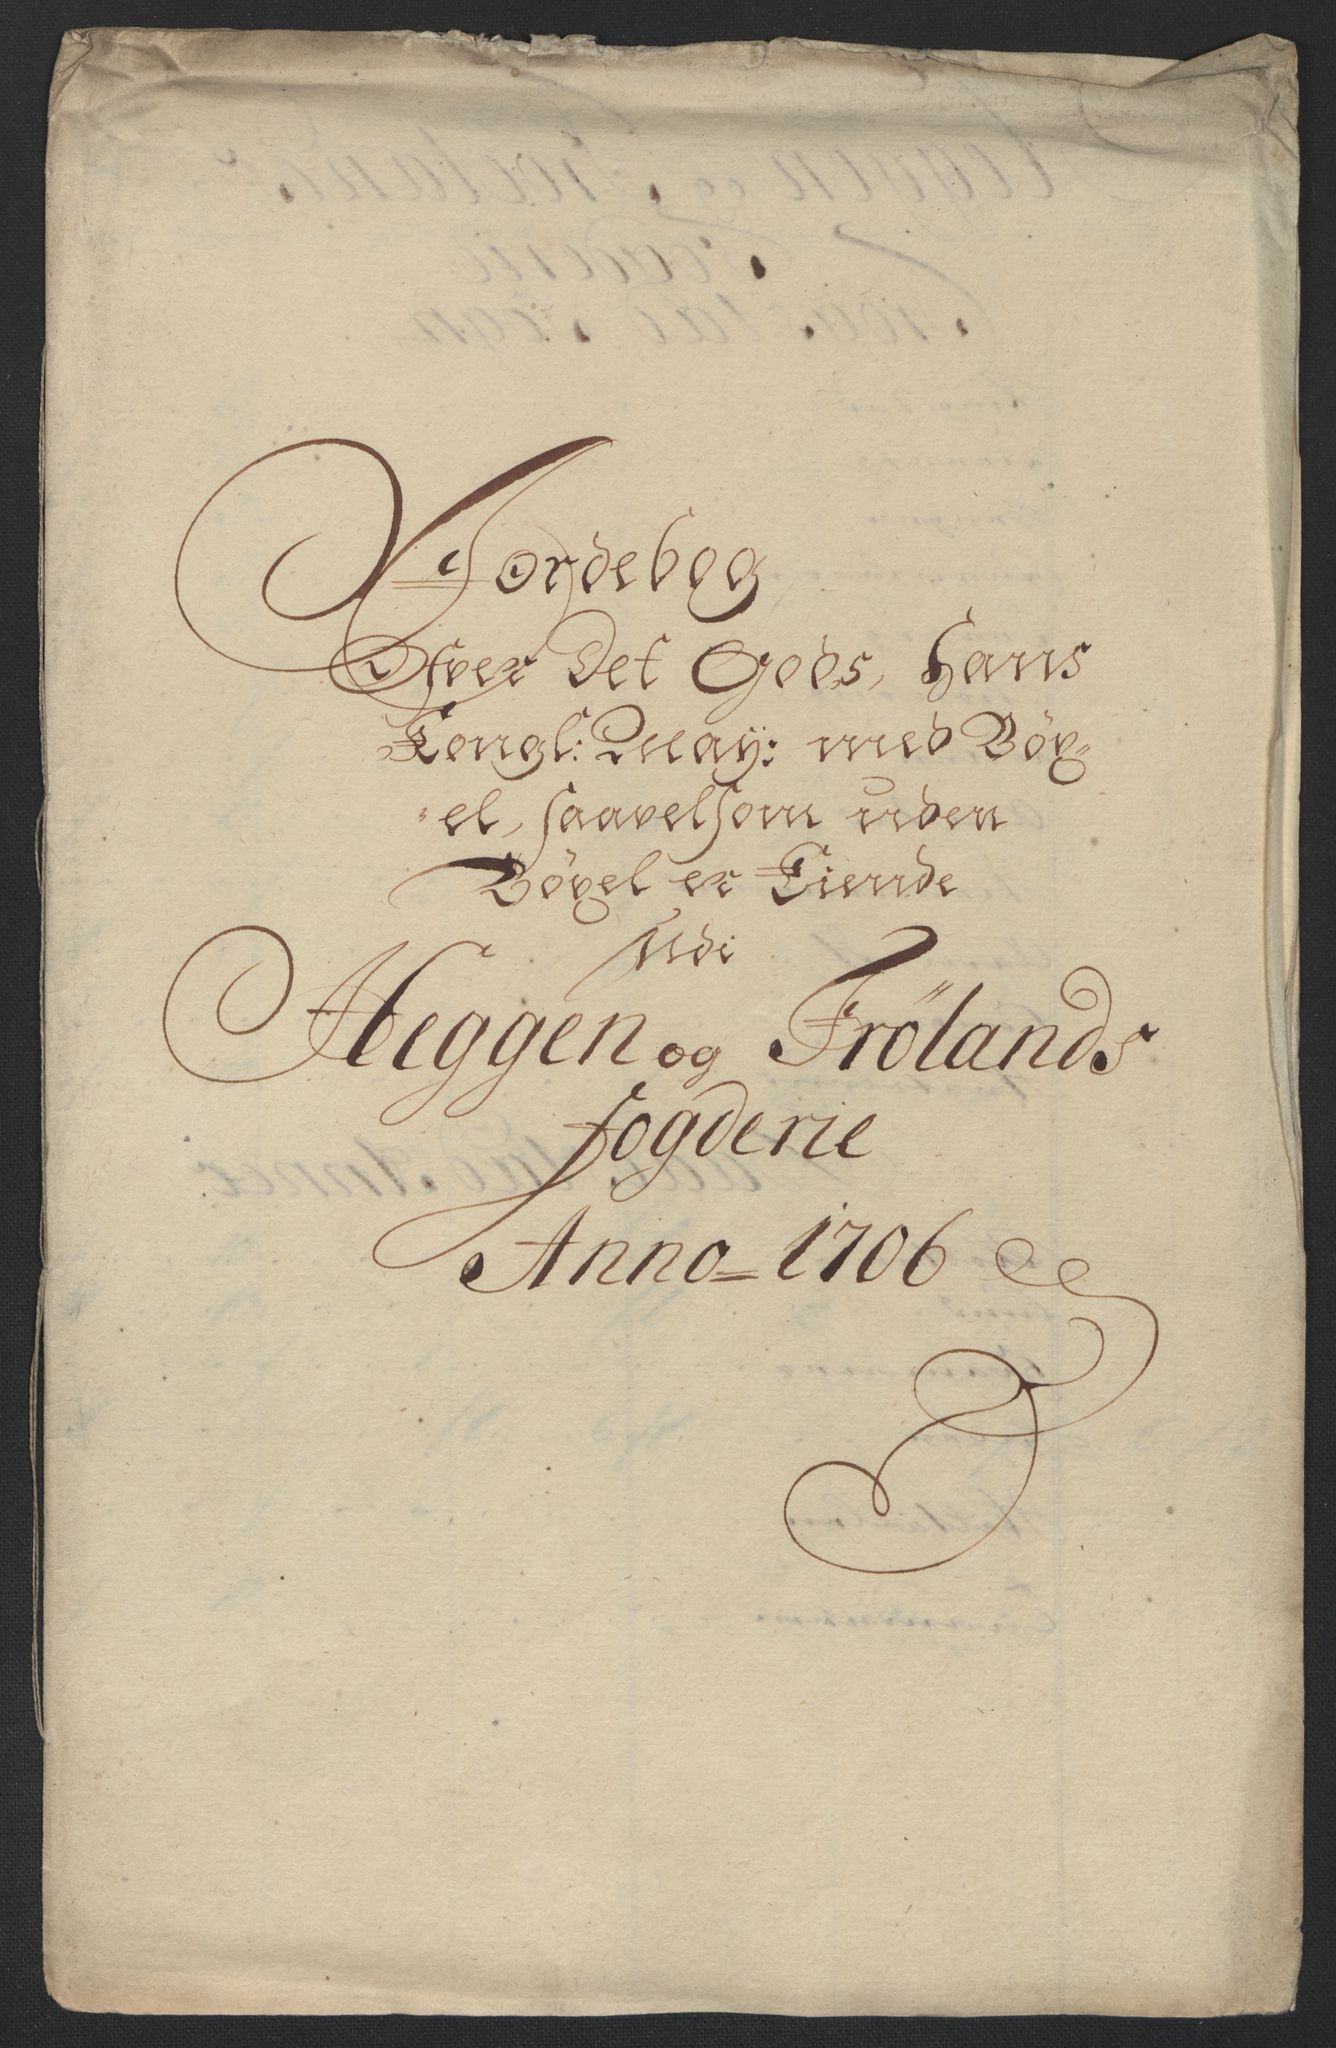 Jordebog
Ofver Det Gods, Hans
Kongl: May: med Böx-
-el, saavelsom uden
Böxel er Eiende
udi
Heggen og Frölands
fogderie
Anno= 1706